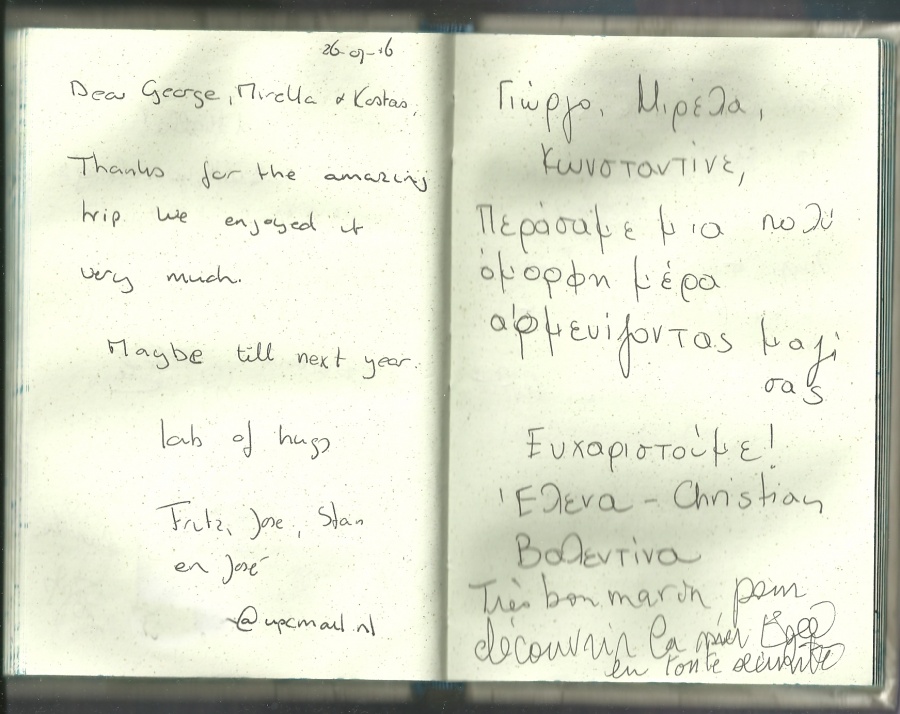 26-07-16
Dear George, Mirella & Kostas,
Thanks for the amazing
trip we enjoyed it
very much.
Maybe till next year.
lots of hugs
Frits, Jose, Stan
en José
@upcmail.nl
Γιώργο, Μιρέλα,
Κωνσταντίνε,
Περάσαμε μια πολύ
όμορφη μέρα
αρμενίζοντας μαζί
σας
Ευχαριστούμε!
Έλενα - Christian
Βαλεντίνα
Très bon marin pour
découvrir la mer Egée
en toute sécurité